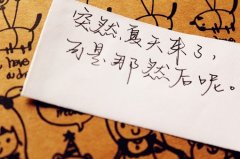 突然,夏天来了,
可是那然后呢。
have